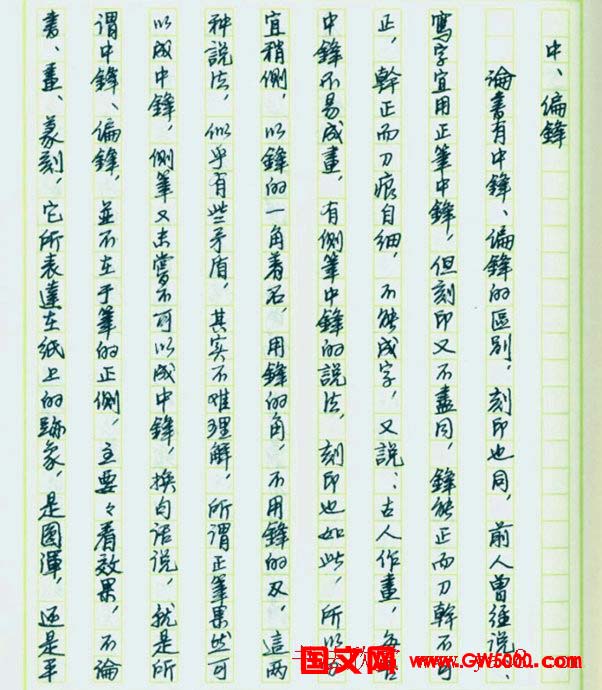 中、偏鋒
論書有中鋒、偏鋒的區別，刻印也同，前人曾經說、
寫字宜用正筆中鋒，但刻印又不盡同，鋒能正而刀幹不可
正，幹正而刀痕自細，不能成字，又說：古人作畫，
中鋒不易成畫，有側筆中鋒的說法，刻印也如此，所以
宜稍側，以鋒的一角着石，用鋒的角，不用鋒的双，這兩
种說法，似乎有些矛盾，其实不难理解，所謂正筆果然可
以成中鋒，側筆又未嘗不可以成中鋒，换句话說，就是所
謂中鋒、偏鋒，並不在于筆的正側，主要々看效果，不論
書、畫、篆刻，它所表達在纸上的跡象，是圆渾，还是平
国文网 www.GW5000.com